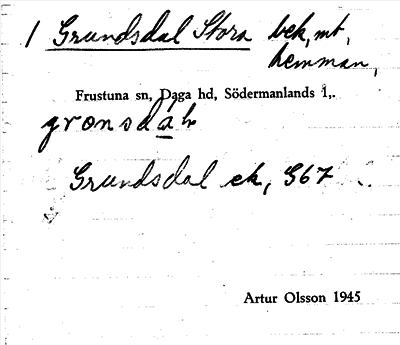 1 Grundsdal Stora bek, mt,
hemman,
Frustuna sn, Daga hd, Södermanlands l,.
gronsdáh
Grundsdal ek, G67
Artur Olsson 1945